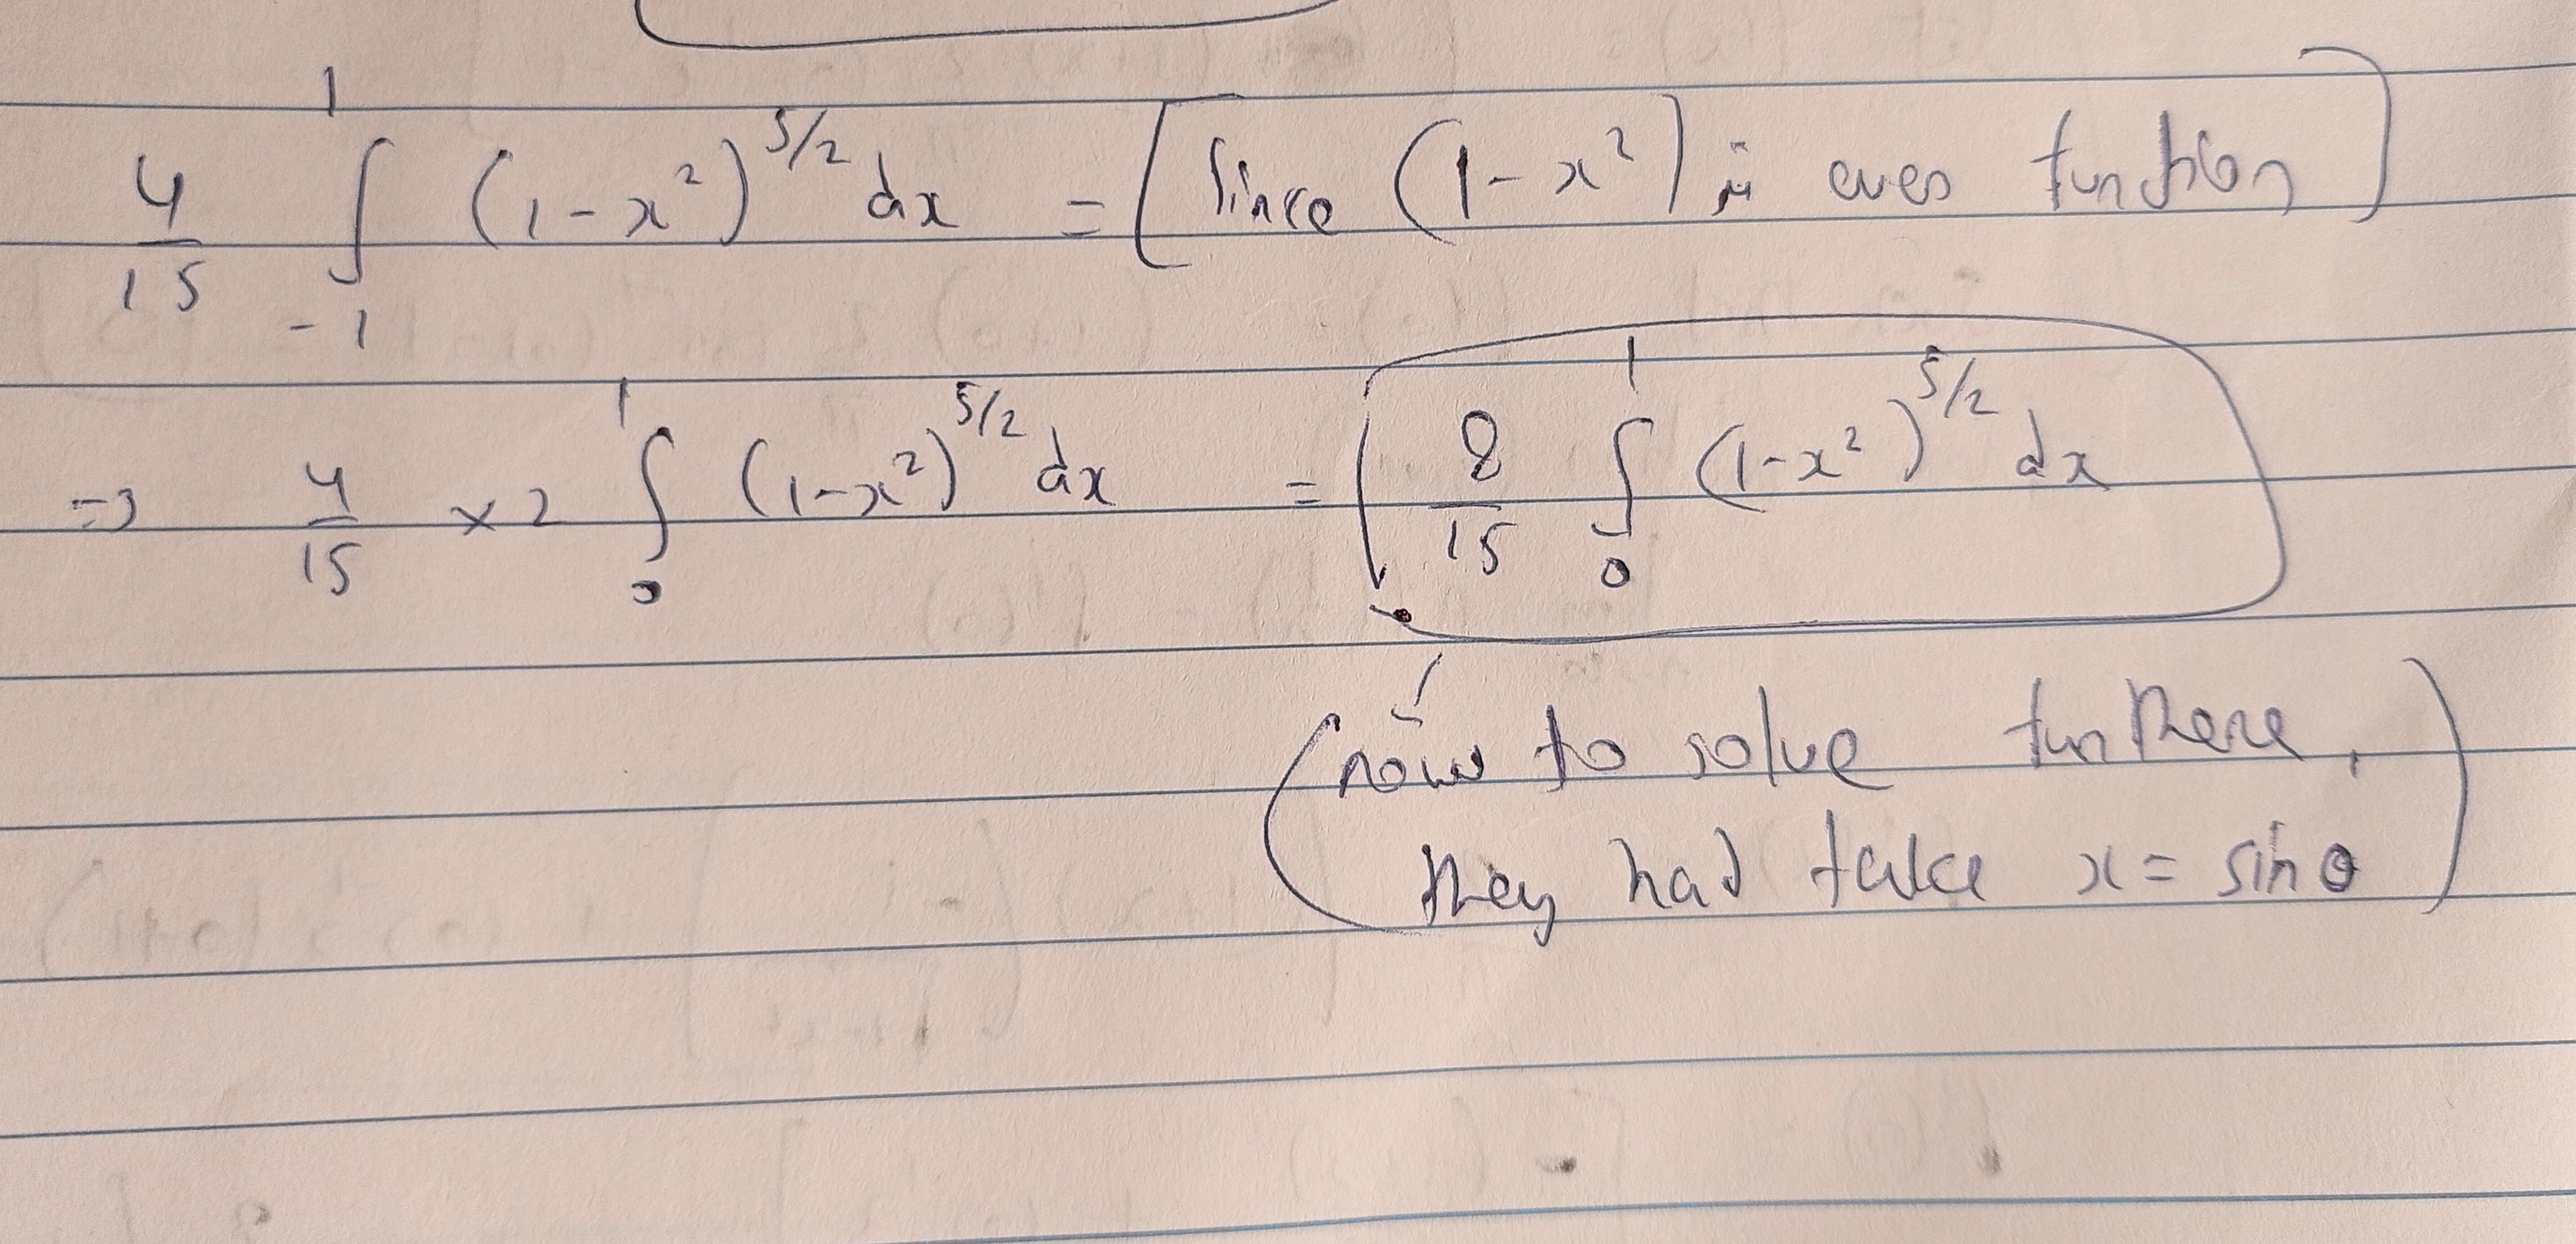 4/15 ∫_{-1}^{1} (1-x²)^{5/2} dx = [Since (1-x²) is even function]
=> 4/15 × 2 ∫_{0}^{1} (1-x²)^{5/2} dx = 8/15 ∫_{0}^{1} (1-x²)^{5/2} dx
(now to solve funthere,
they had take x = sin θ)